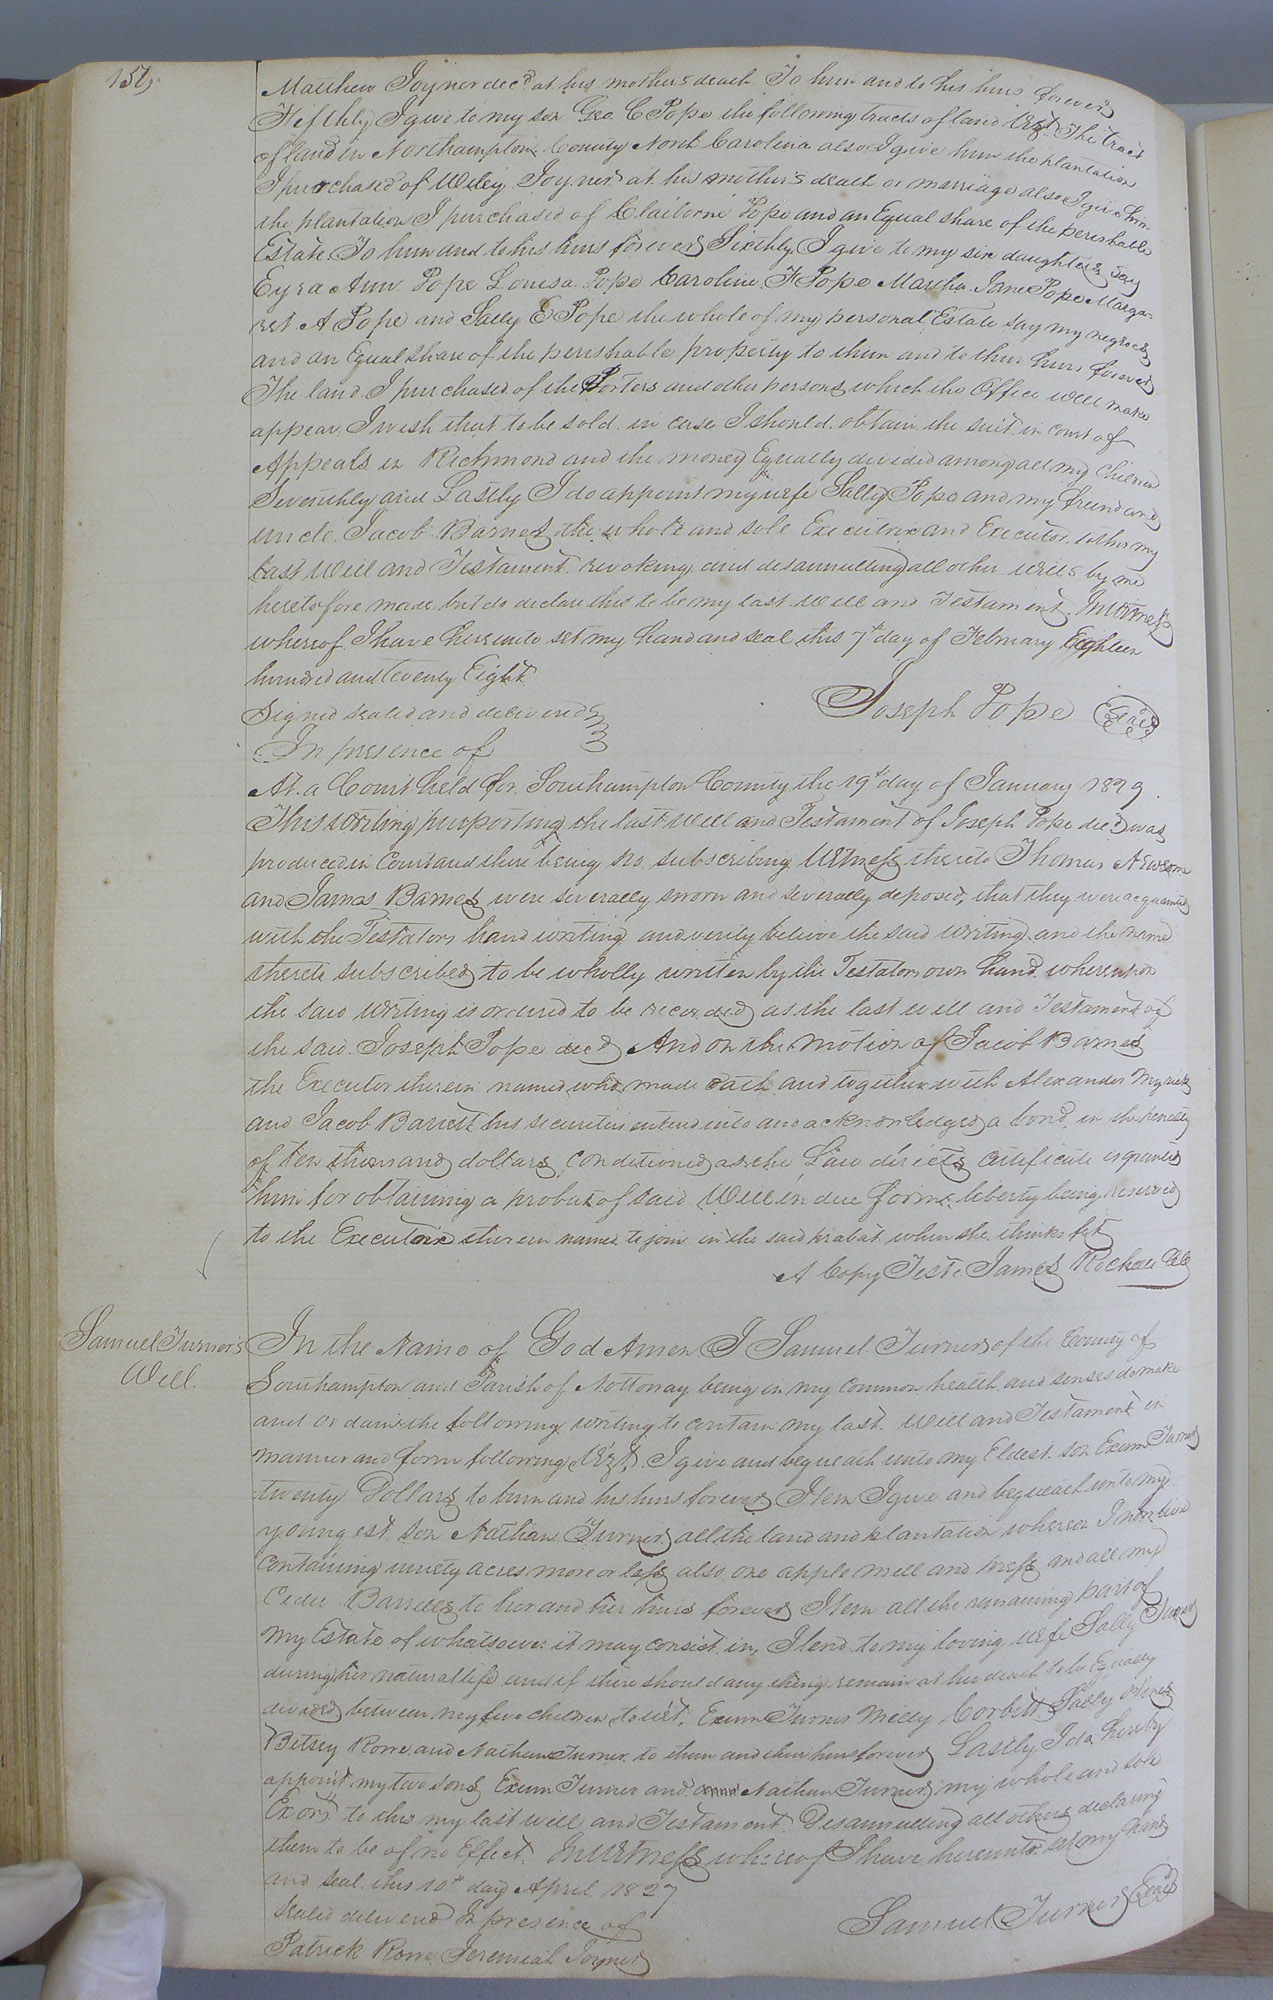 Matthew Joyner decd at his mothers death To him and to his heirs forever
Fifthly I give to my son Geo. C Pope the following tracts of land The tract
of land in Northampton County North Carolina also I give him the plantation
I purchased of Wiley Joyner at his mother's death or marriage also I give him
the plantation I purchased of Claiborne Pope and an Equal share of the perishable
Estate To him and to his heirs forever Sixthly I give to my six daughters say
Eyra Ann Pope Louisa Pope Caroline F Pope Martha Jane Pope Marga-
ret A Pope and Sally E Pope the whole of my personal Estate say my negroes
and an Equal share of the perishable property to them and to their heirs forever
The land I purchased of the Porters and other persons which the Office will make
appear I wish that to be sold in case I should obtain the suit in court of
Appeals in Richmond and the money Equally divided among all my children
Seventhly and Lastly I do appoint my wife Sally Pope and my friend and
uncle Jacob Barnes the whole and sole Executrix and Executor to this my
last Will and Testament revoking and disannulling all other wills by me
heretofore made but do declare this to be my last Will and Testament In witness
whereof I have hereunto set my hand and seal this 7th day of February Eighteen
hundred and twenty Eight
Joseph Pope Seal
Signed sealed and delivered
In presence of
At a Court held for Southampton County the 19th day of January 1829
This writing purporting the last Will and Testament of Joseph Pope decd was
produced in Court and there being no subscribing Witness thereto Thomas Newsom
and James Barnes were severally sworn and severally deposed, that they were acquainted
with the Testators hand writing and verily believe the said writing and the name
thereto subscribed to be wholly written by the Testators own hand whereupon
the said writing is ordered to be recorded as the last will and Testament of
the said Joseph Pope decd And on the motion of Jacob Barnes
the Executor therein named who made oath and together with Alexander Myrick
and Jacob Barrett his securities entered into and acknowledged a bond in the penalty
of ten thousand dollars conditioned as the Law directs certificate is granted
him for obtaining a probat of said Will in due form liberty being reserved
to the Executrix therein named to join in the said probat when she thinks fit
A Copy Teste James Rochelle
Samuel Turner's
Will.
In the Name of God Amen I Samuel Turner of the County of
Southampton and Parish of Nottoway being in my common health and senses do make
and ordain the following writing to contain my last Will and Testament in
manner and form following I give and bequeath unto my Eldest son Exum Turner
twenty Dollars to him and his heirs forever Item I give and bequeath unto my
youngest son Nathan Turner all the land and plantation whereon I now live
containing ninety acres more or less also one apple mill and press and all my
Cider Barrells to her and her heirs forever Item all the remaining part of
my Estate of whatsoever it may consist in, I lend to my loving wife Sally Turner
during her natural life and if there should any thing remain at her death to be Equally
divided between my five children to wit, Exum Turner Milly Corbitt Sally
Betsey Rorre and Nathan Turner to them and their heirs forever Lastly I do hereby
appoint my two sons Exum Turner and Nathan Turner my whole and sole
Exors to this my last will and Testament Disannulling all others declaring
them to be of no Effect. In witness whereof I have hereunto set my hand
and seal this 10th day April 1827
Samuel Turner Seal
Sealed delivered In presence of
Patrick Rorre Jeremiah Joyner